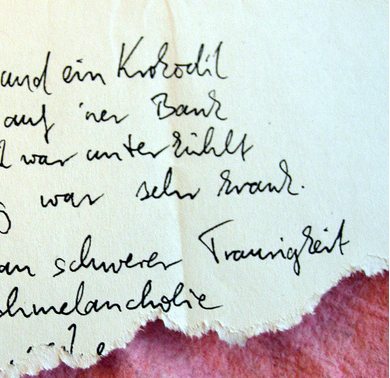 und ein Krokodil
auf 'ner Bank
war unterkühlt
war sehr krank.
an schwerer Traurigkeit
hmelancholie